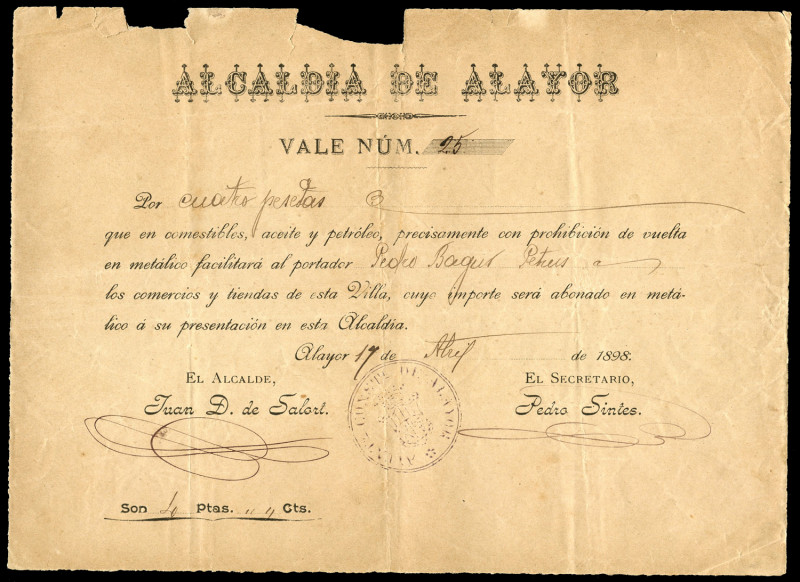 ALCALDIA DE ALAYOR
VALE NÚM. 25
Por cuatro pesetas
que en comestibles, aceite y petróleo, precisamente con prohibición de vuelta
en metálico facilitará al portador Pedro Bagur
los comercios y tiendas de esta Villa, cuyo importe será abonado en metá-
lico á su presentación en esta Alcaldía.
Alayor 17 de Abril de 1898.
EL ALCALDE,
Juan D. de Salort.
EL SECRETARIO,
Pedro Sintes.
AYUNTO CONSTL DE ALAYOR
Son 4 Ptas. " " Cts.